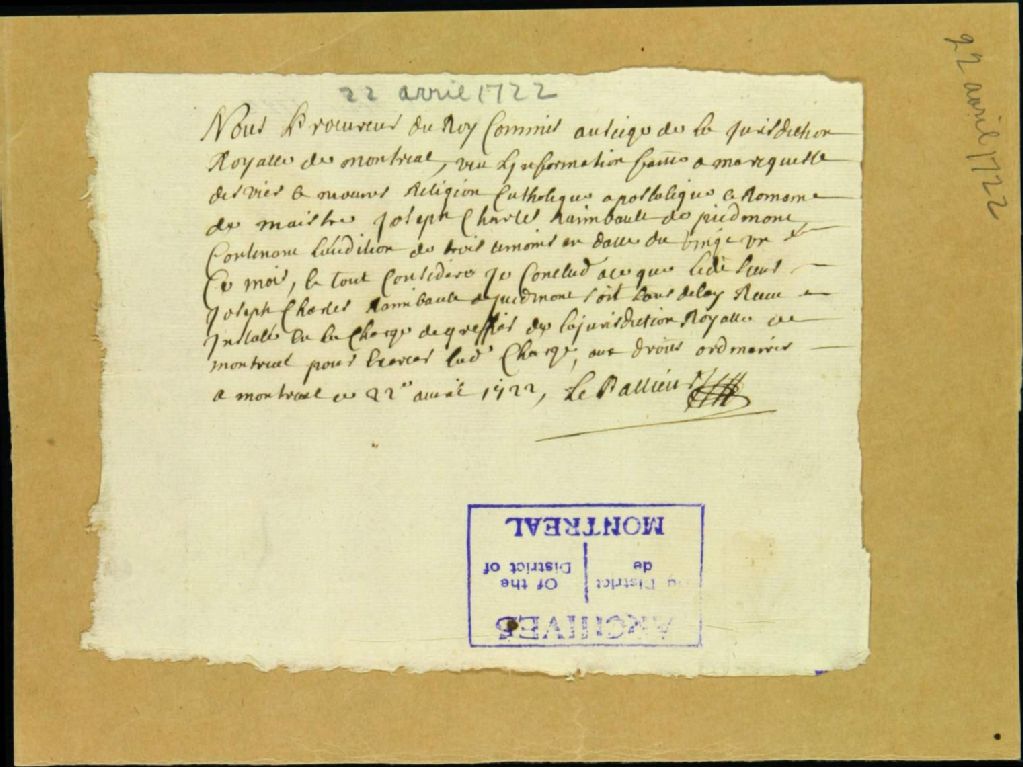 22 avril 1722
Nous Procureur du Roy Commis au siege de la Jurisdiction
Royalle de montreal, veu L'Information faitte a ma requeste
des vies & moeurs Religion Catholique apostolique & Romaine
de maistre Joseph Charles Raimbault de piedmont,
Contenant L'audition de trois temoins en datte du vingt un
Ce mois, le tout Considéré Je Conclud ace que ledt Sieur
Joseph Charles Raimbault de piedmont soit sans delay Receu &
Installé En la Charge de greffier de la jurisdiction Royalle de
montreal pour Exercer lad. Charge, aux droits ordinaires
a montreal ce 22e avril 1722, Le Pallieur
22 avril 1722
ARCHIVES
Du District Of the
de District of
MONTREAL